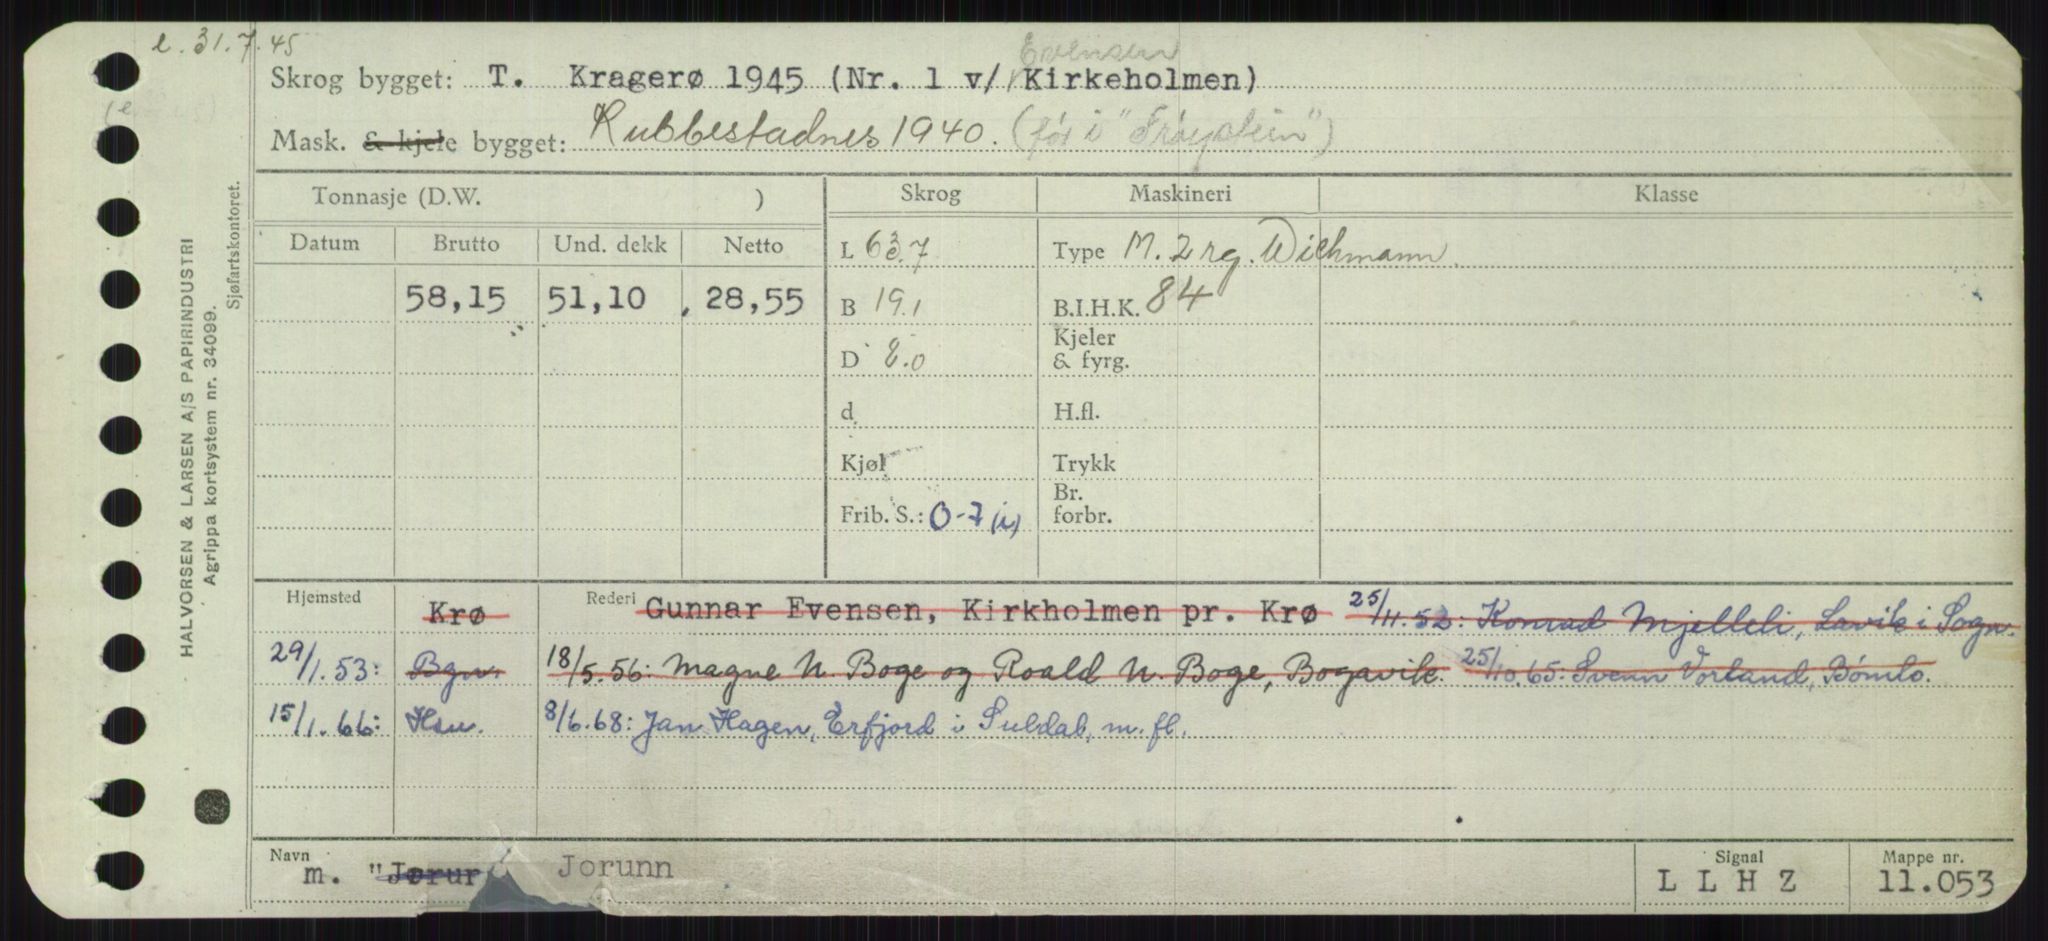 l. 31.7.45
Evensen
Skrog bygget: T. Kragerø 1945 (Nr. 1 v/ Kirkeholmen)
Mask. & kjele bygget: Rubbestadnes 1940. (før i "Frøystein")
Tonnasje (D.W. ) Skrog Maskineri Klasse
Datum Brutto Und. dekk Netto L 63.7 Type M. 2 rg. Wichmann.
58,15 51,10 28,55 B 19.1 B.I.H.K. 84
Kjeler
D 8.0 & fyrg.
d H.fl.
Kjøl Trykk
Br.
Frib. S.: 0-7 (i) forbr.
Hjemsted Krø Rederi Gunnar Evensen, Kirkholmen pr. Krø 25/11.52: Konrad Mjelleli, Lavik i Sogn.
29/1.53: Bgn. 18/5.56: Magne N. Boge og Roald N. Boge, Bogavik. 25/10.65: Svenn Vorland, Bømlo.
15/1.66: Hsu. 8/6.68: Jan Hagen, Erfjord i Suldal, m. fl.
Navn Signal Mappe nr.
m. "Jørun Jorunn L L H Z 11.053
HALVORSEN & LARSEN A/S PAPIRINDUSTRI
Agrippa kortsystem nr. 34099.
Sjøfartskontoret.